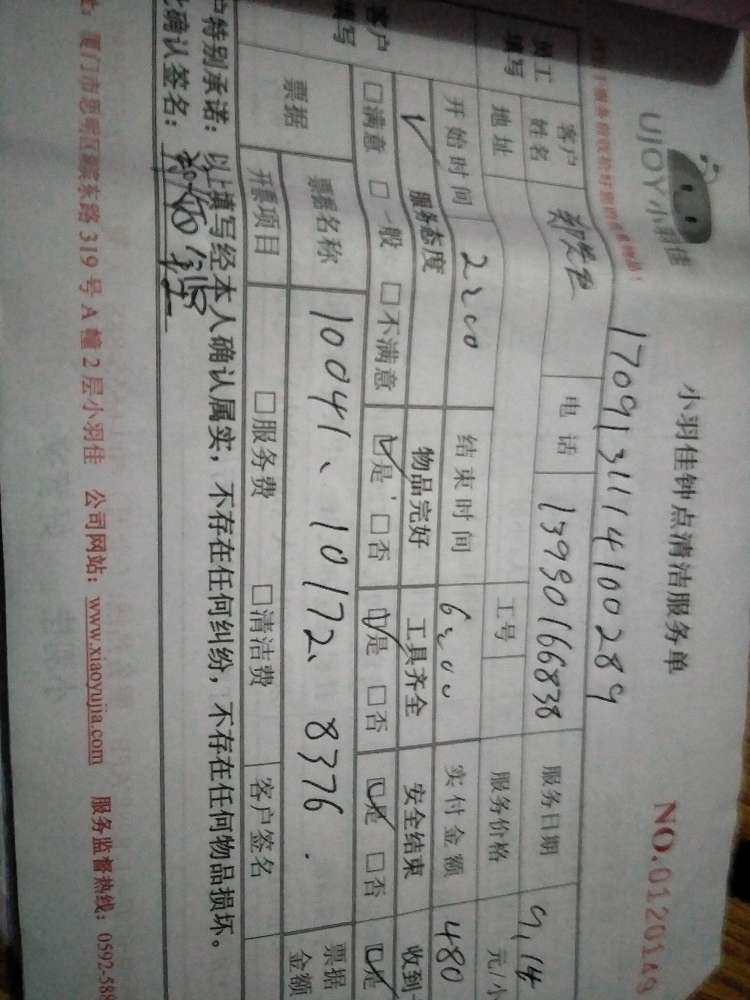 UJOY小羽佳
小羽佳钟点清洁服务单
NO.0120149
1709131114100289
员工填写
客户姓名 郑先生 电话 13990166838 服务日期 9,14
地址 工号 服务价格 元/小
开始时间 2:00 结束时间 6:00 实付金额 480
客户填写
服务态度 物品完好 工具齐全 安全结束 收到
☑满意 □一般 □不满意 ☑是 □否 ☑是 □否 ☑是 □否 ☑是
票据 票据名称 10041、10172、8376. 票据金额
开票项目 □服务费 □清洁费 客户签名
户特别承诺：以上填写经本人确认属实，不存在任何纠纷，不存在任何物品损坏。
此确认签名：
址：厦门市思明区 东路319号A幢2层小羽佳 公司网站：www.xiaoyujia.com 服务监督热线：0592-588